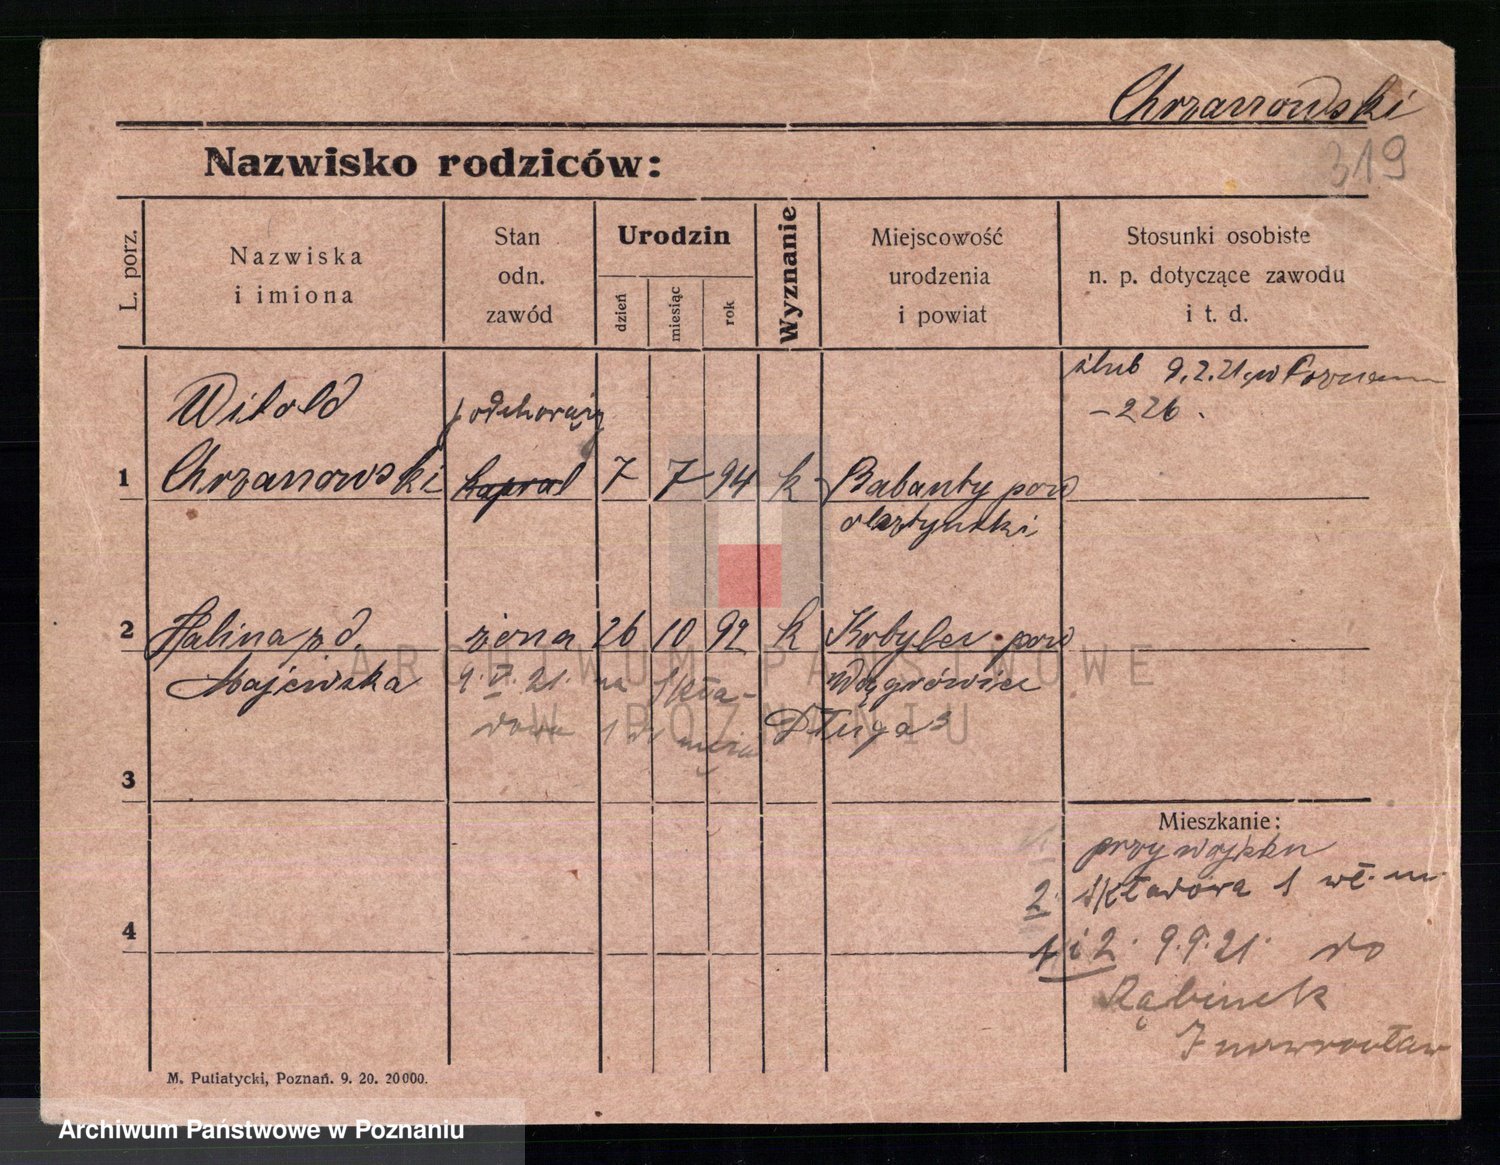 Chrzanowski
319
Nazwisko rodziców:
L. porz.
Nazwiska
i imiona
Stan
odn.
zawód
Urodzin
dzień
miesiąc
rok
Wyznanie
Miejscowość
urodzenia
i powiat
Stosunki osobiste
n. p. dotyczące zawodu
i t. d.
ślub 9.2.21. w Poznaniu
- 226.
Witold podchorąży
1 Chrzanowski kapral 7 7 94 k Babanty pow
olsztyński
2 Halina zd. żona 26 10 92 k Kobylec pow
Majewska 9.VI.21. na Skła- Wągrówiec
dowa 1 Długa 3
3
Mieszkanie:
przy wojsku
2. Składowa 1 wł. m.
4
1 i 2. 9.9.21. do
Rąbinek
Inowrocław
M. Putiatycki, Poznań. 9. 20. 20000.
ARCHIWUM PAŃSTWOWE
W POZNANIU
Archiwum Państwowe w Poznaniu